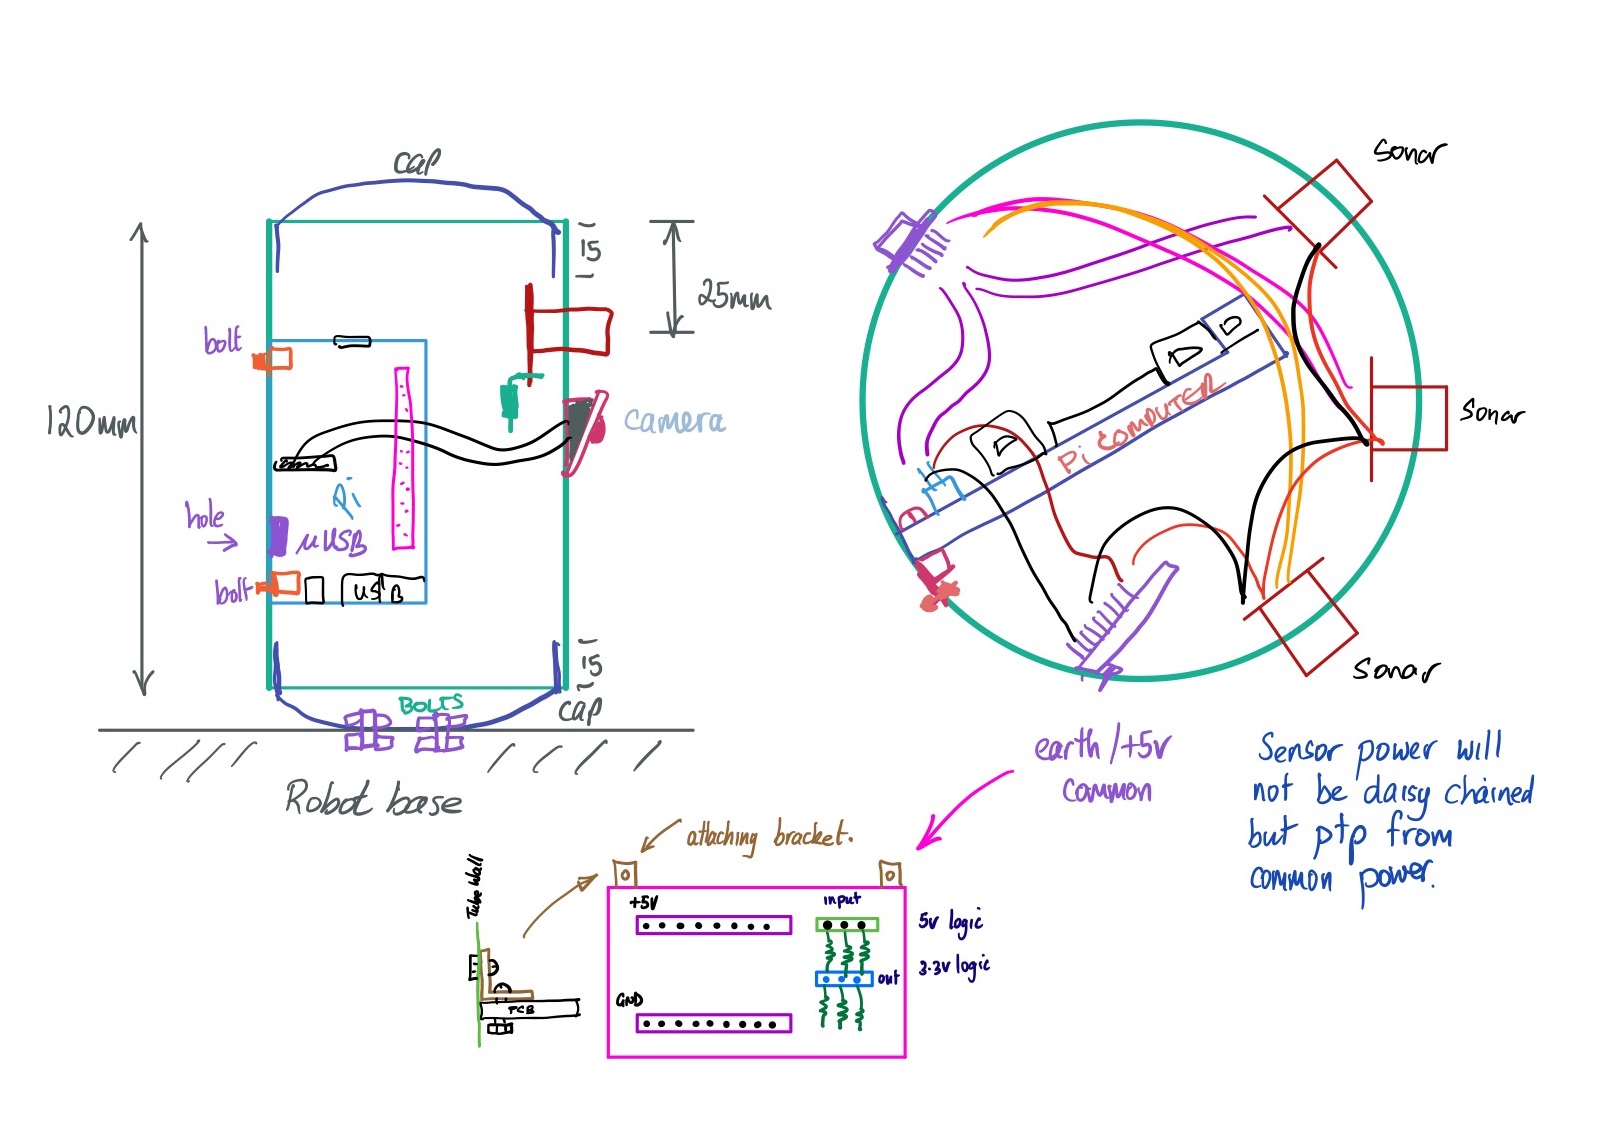 cap
15
25mm
bolt
120mm
camera
Pi
hole
µUSB
bolt
USB
15
BOLTS
cap
Robot base
Sonar
Sonar
Pi COMPUTER
Sonar
earth/+5v
common
Sensor power will
not be daisy chained
but ptp from
common power.
attaching bracket.
Tube Wall
PCB
+5V
input
5v logic
3.3v logic
out
GND